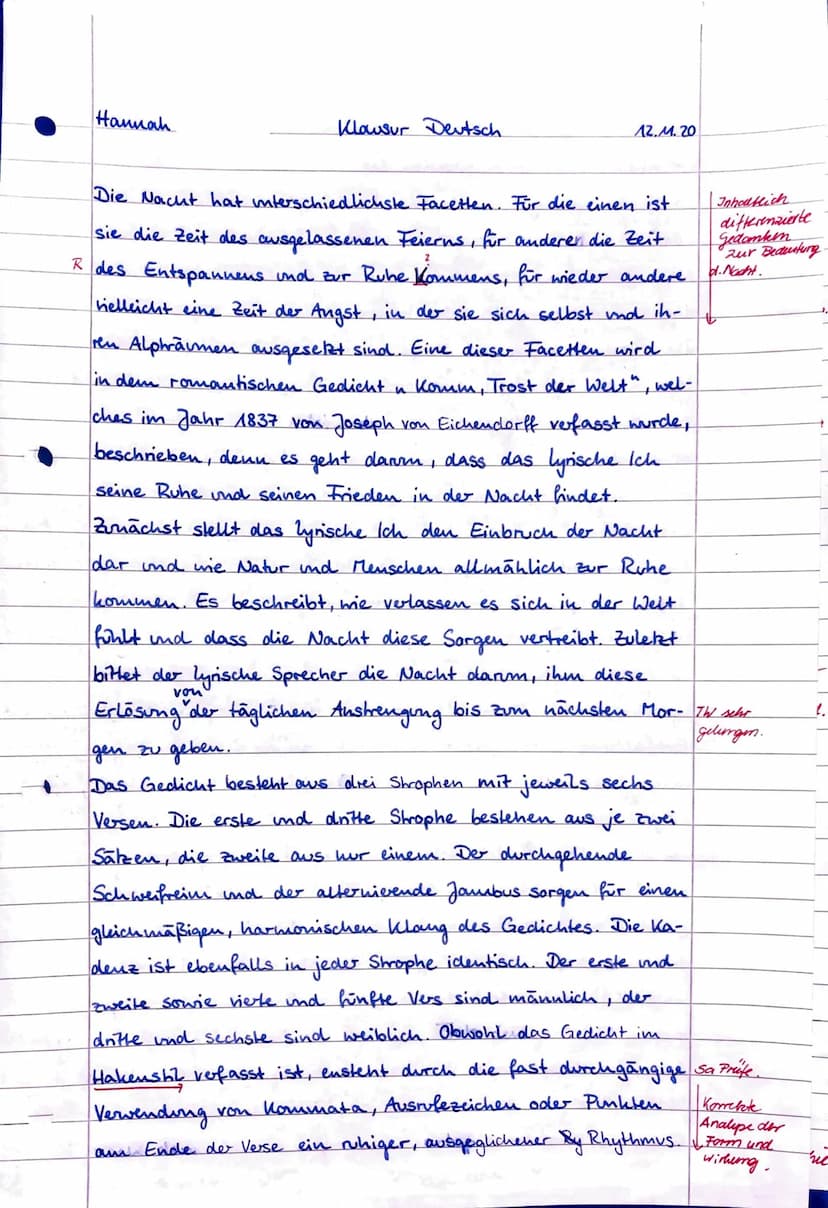 Hannah Klausur Deutsch 12.11.20
Die Nacht hat unterschiedlichste Facetten. Für die einen ist
sie die Zeit des ausgelassenen Feierns, für anderer die Zeit
R des Entspannens und zur Ruhe Kommens, für wieder andere
vielleicht eine Zeit der Angst, in der sie sich selbst und ih-
ren Alphräumen ausgesetzt sind. Eine dieser Facetten wird
in dem romantischen Gedicht „Komm, Trost der Welt", wel-
ches im Jahr 1837 von Joseph von Eichendorff verfasst wurde,
beschrieben, denn es geht darum, dass das lyrische Ich
seine Ruhe und seinen Frieden in der Nacht findet.
Zunächst stellt das lyrische Ich den Einbruch der Nacht
dar und wie Natur und Menschen allmählich zur Ruhe
kommen. Es beschreibt, wie verlassen es sich in der Welt
fühlt und dass die Nacht diese Sorgen vertreibt. Zuletzt
bittet der lyrische Sprecher die Nacht darum, ihm diese
Erlösung von der täglichen Anstrengung bis zum nächsten Mor-
gen zu geben.
Das Gedicht besteht aus drei Strophen mit jeweils sechs
Versen. Die erste und dritte Strophe bestehen aus je zwei
Sätzen, die zweite aus nur einem. Der durchgehende
Schweifreim und der alternierende Jambus sorgen für einen
gleichmäßigen, harmonischen Klang des Gedichtes. Die Ka-
denz ist ebenfalls in jeder Strophe identisch. Der erste und
zweite sowie vierte und fünfte Vers sind männlich, der
dritte und sechste sind weiblich. Obwohl das Gedicht im
Hakenstil verfasst ist, ensteht durch die fast durchgängige
Verwendung von Kommata, Ausrufezeichen oder Punkten
am Ende der Verse ein ruhiger, ausgeglichener Rhythmus.
Inhaltlich
differenzierte
Gedanken
zur Bedeutung
d. Nacht.
TW sehr
gelungen.
Sa Prüfe.
Korrekte
Analyse der
Form und
Wirkung.